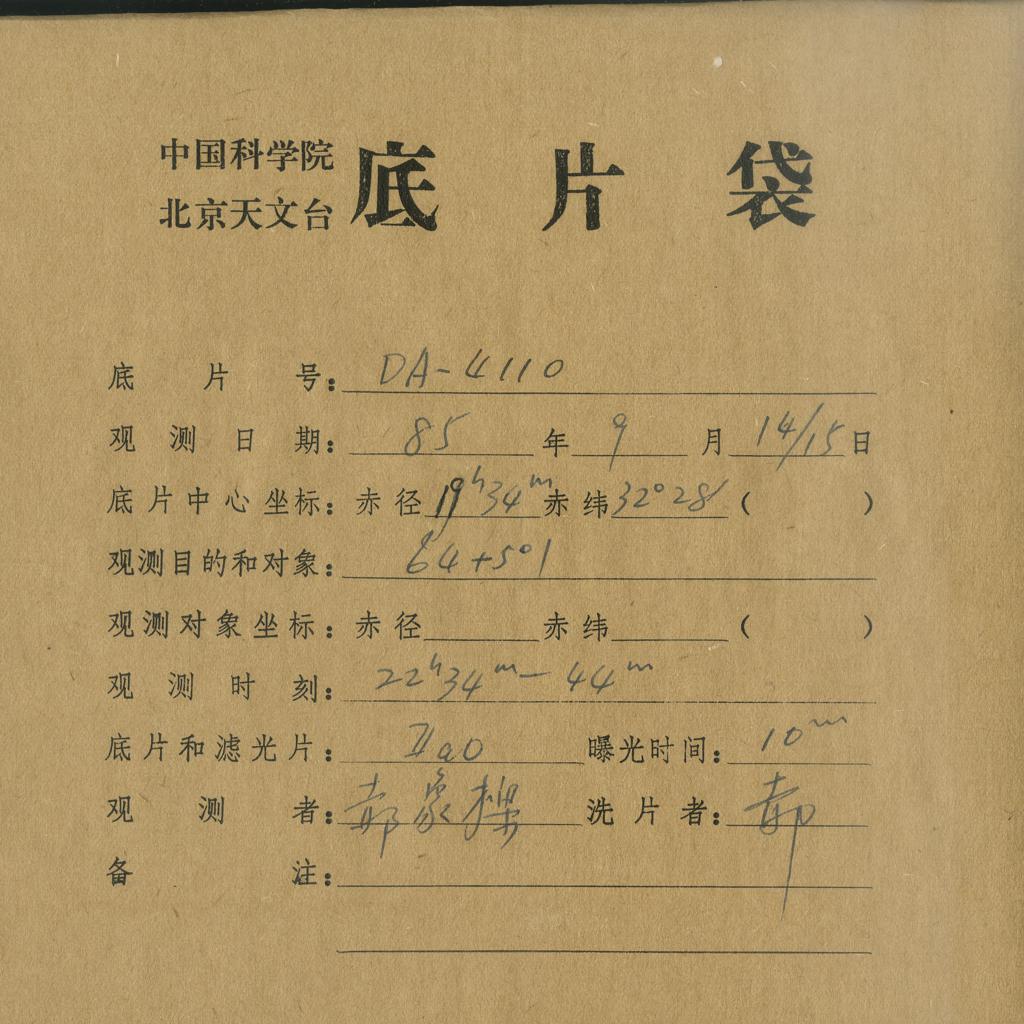 中国科学院
北京天文台
底片袋
底片号：DA-4110
观测日期：85年9月14/15日
底片中心坐标：赤径19ʰ34ᵐ赤纬32°28′（ ）
观测目的和对象：64+5°1
观测对象坐标：赤径 赤纬 （ ）
观测时刻：22ʰ34ᵐ-44ᵐ
底片和滤光片：IIaO 曝光时间：10ᵐ
观测者：郝象樑 洗片者：郝
备注：